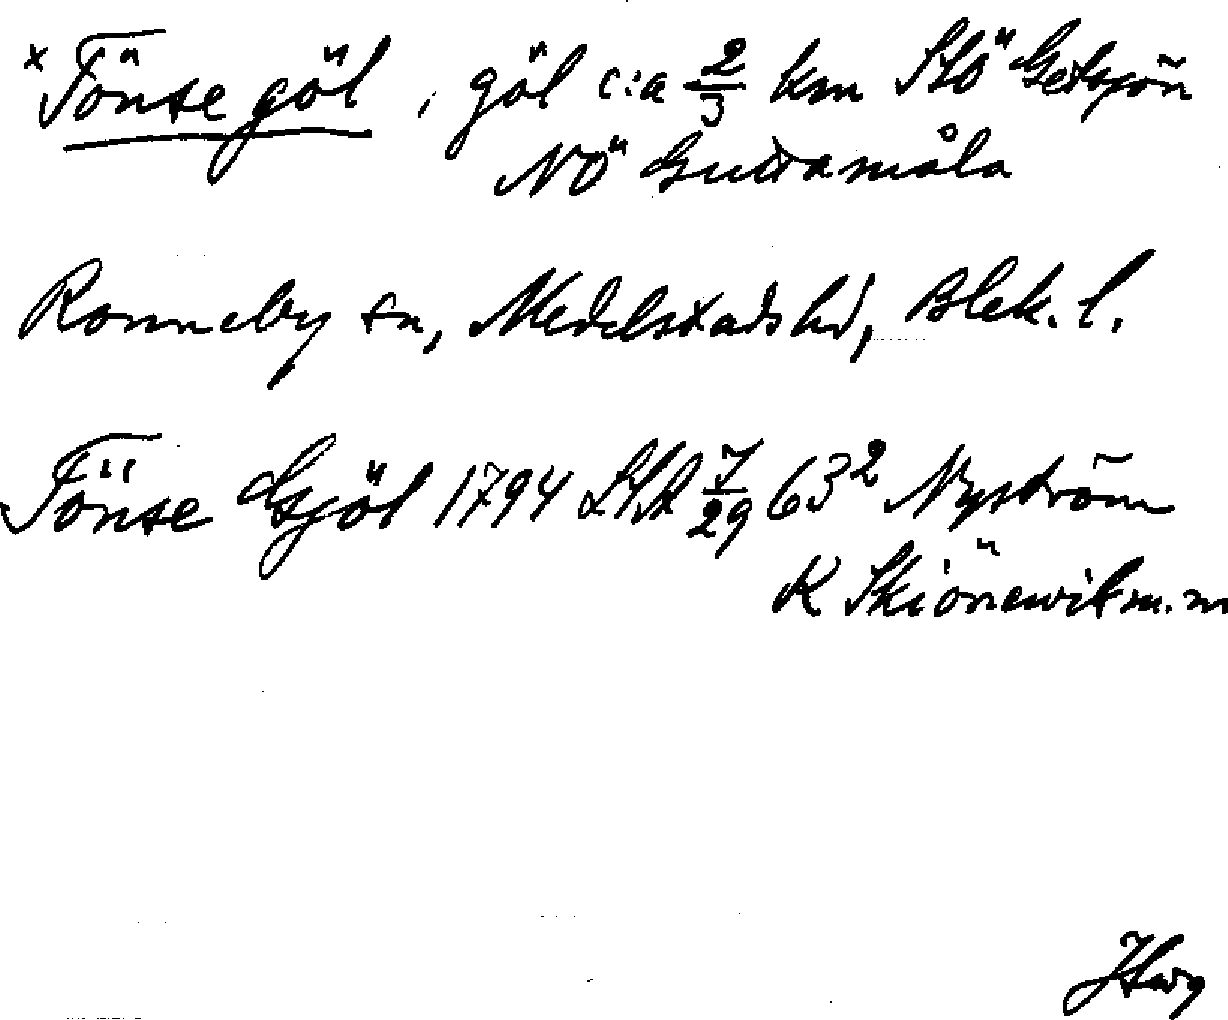 × Tönse göl, göl c:a 2/3 km SSÖ Getsjön
NÖ Guttamåla
Ronneby sn, Medelstads hd, Blek. l.
Tönse Gjöl 1794 LSA 7/29 63² Nyström
K Skiönewik m. m